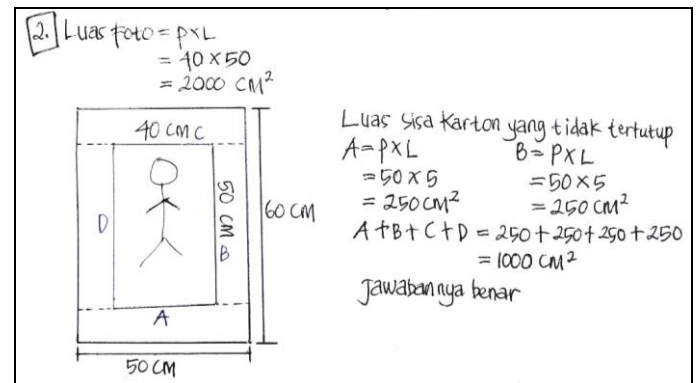 2. Luas foto = P×L
= 40 × 50
= 2000 CM²
40 CM C
50 CM
B
D
A
60 CM
50 CM
Luas sisa Karton yang tidak tertutup
A = P×L
= 50 × 5
= 250 CM²
B = P×L
= 50 × 5
= 250 CM²
A+B+C+D = 250+250+250+250
= 1000 CM²
Jawabannya benar